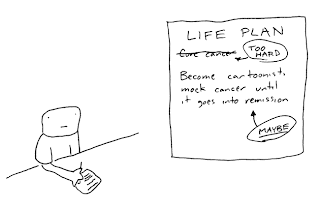 LIFE PLAN
Cure cancer TOO HARD
Become cartoonist,
mock cancer until
it goes into remission
MAYBE